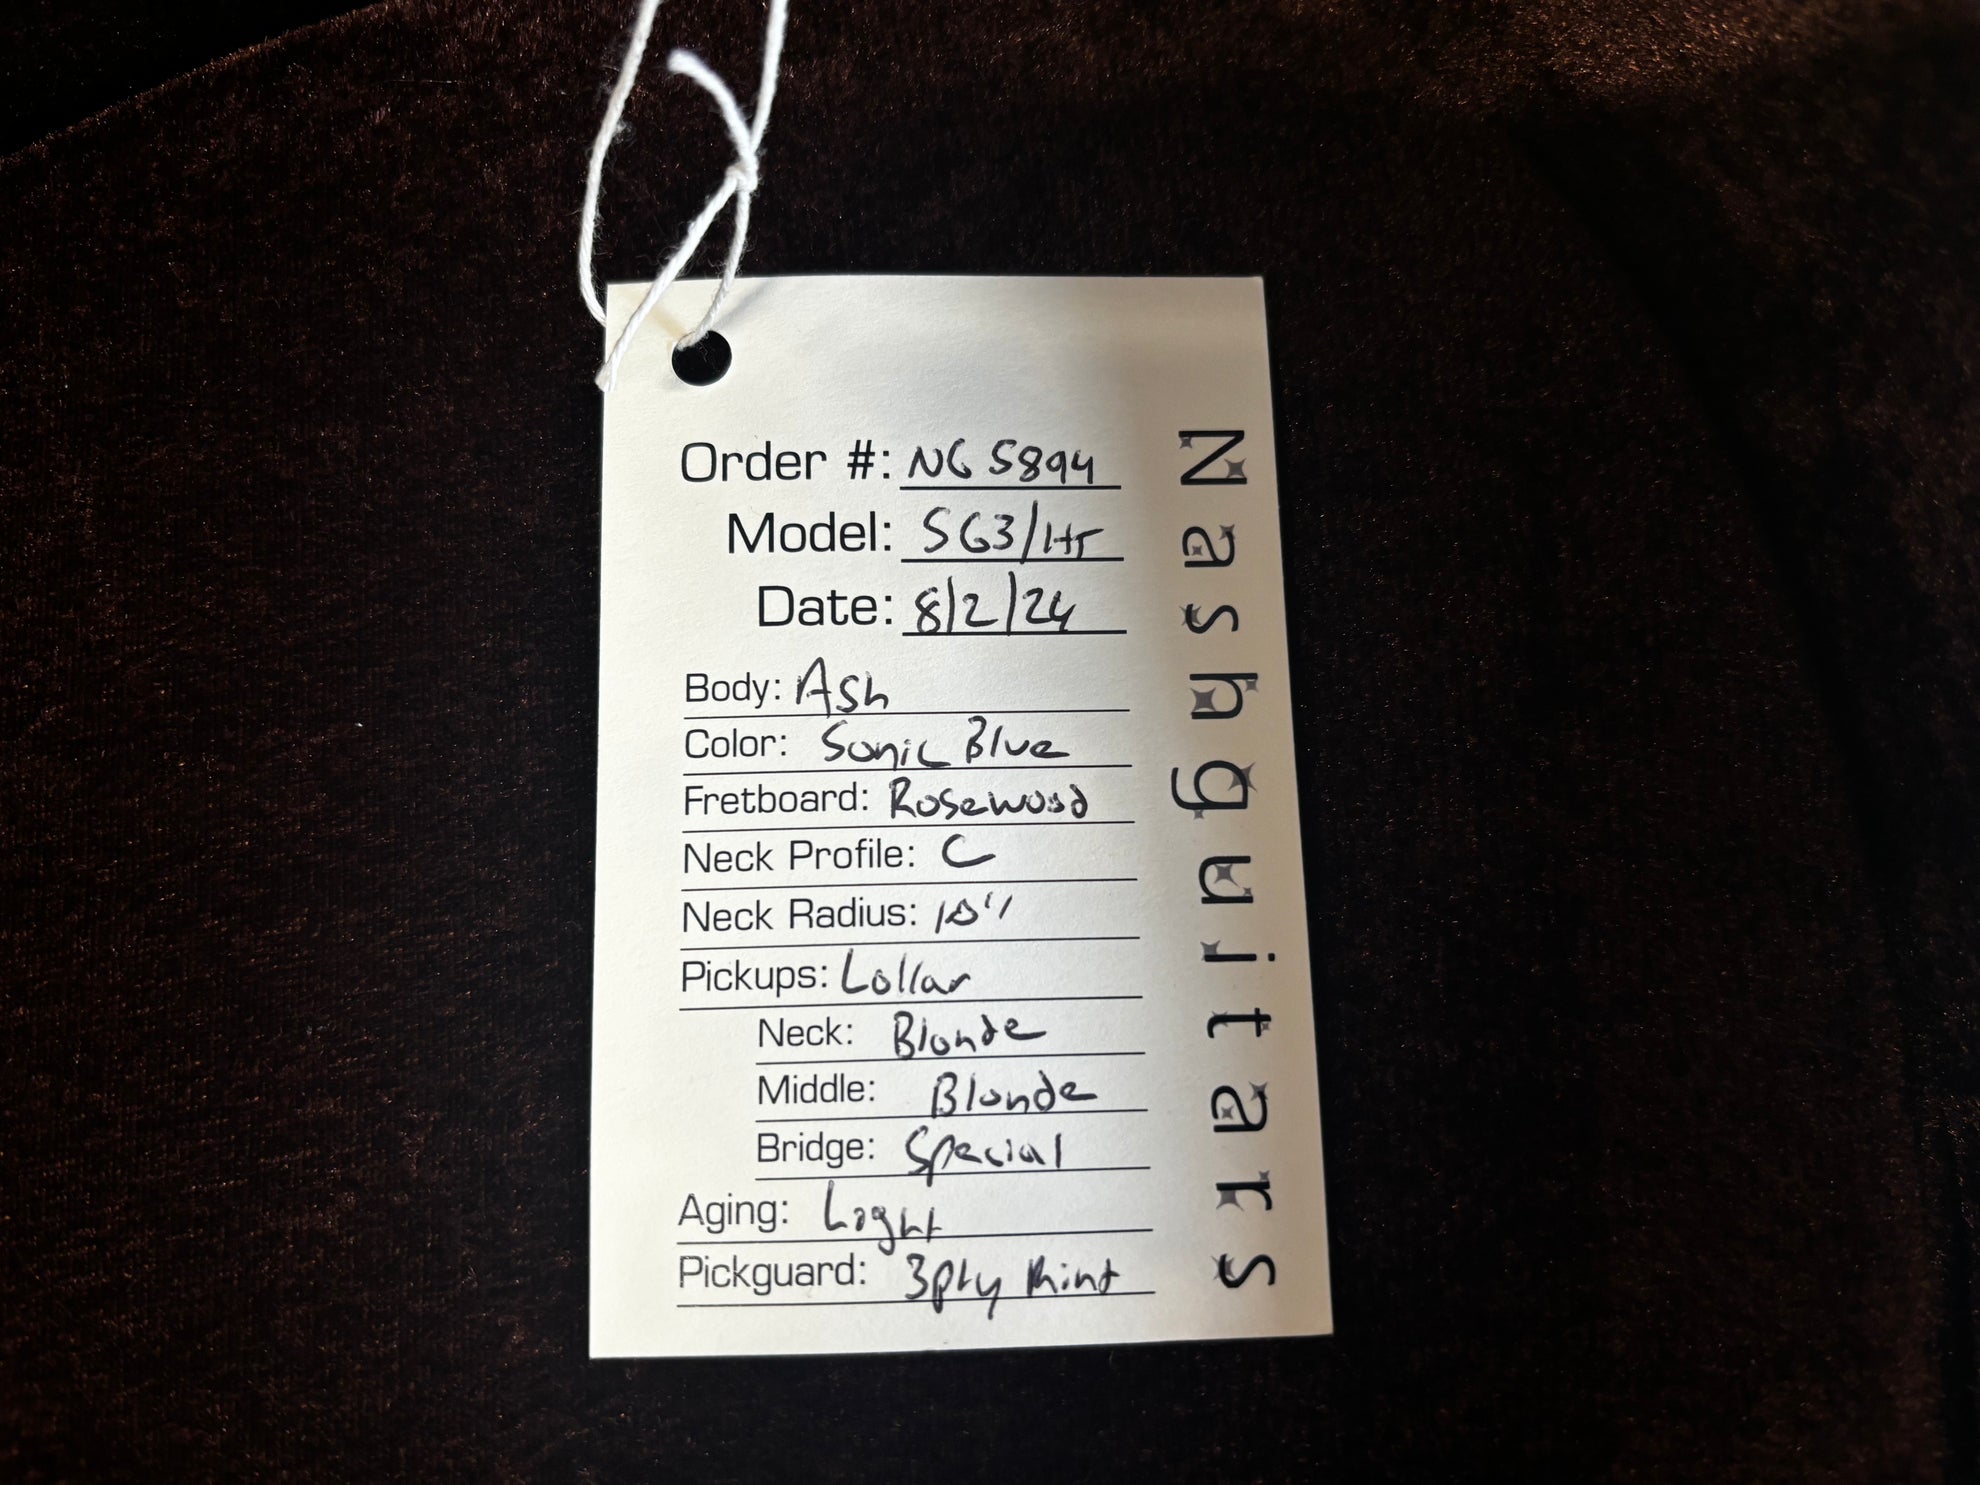 Order #: NG 5894
Model: S63/HT
Date: 8/2/24
Body: Ash
Color: Sonic Blue
Fretboard: Rosewood
Neck Profile: C
Neck Radius: 10"
Pickups: Lollar
Neck: Blonde
Middle: Blonde
Bridge: Special
Aging: Light
Pickguard: 3ply Mint
Nashguitars